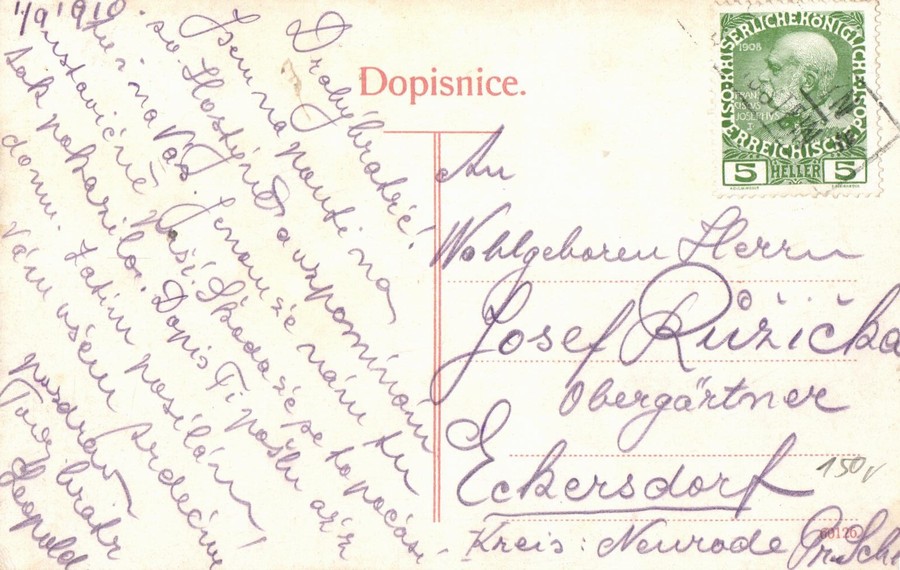 1/9 1910.
Drahý bratře!
Jsem na pouti na
sv. Hostýně a vzpomínám
tu i na Vás. Jenom že nám tu
ustavičně prší. Škoda že se to počasí
tak pokazilo. Dopis Ti pošlu až z
domu. Zatím posílám
Vám všem srdečný
pozdrav
Tvůj bratr
Leopold
Dopisnice.
An
Wohlgeboren Herrn
Josef Růžička
Obergärtner
Eckersdorf
Kreis: Neurode Pr. Schl
150
60126.
1908
5 HELLER 5